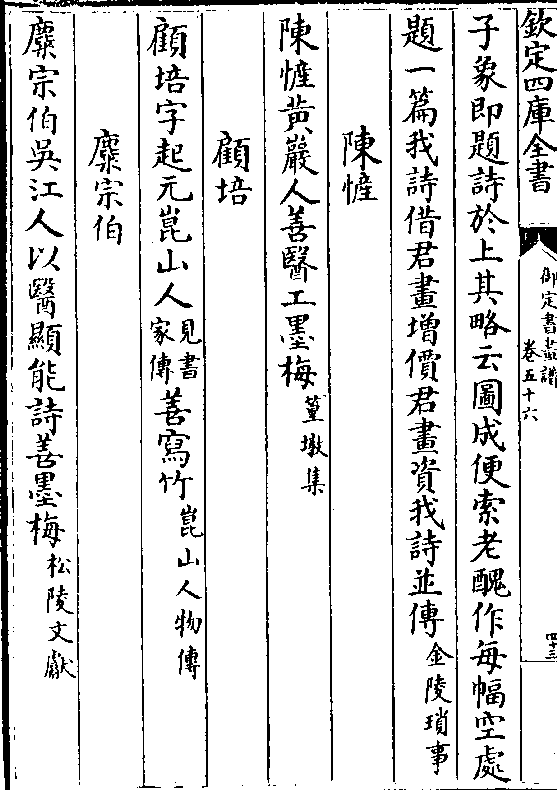 欽定四庫全書
御定書畫譜
卷五十六
四十三
子象即題詩於上其略云圖成便索老醜作每幅空處
題一篇我詩借君畫增價君畫資我詩並傳金陵瑣事
陳惟
陳惟黃巖人善醫工墨梅篁墩集
顧培
顧培字起元崑山人見書家傳善寫竹崑山人物傳
糜宗伯
糜宗伯吳江人以醫顯能詩善墨梅松陵文獻